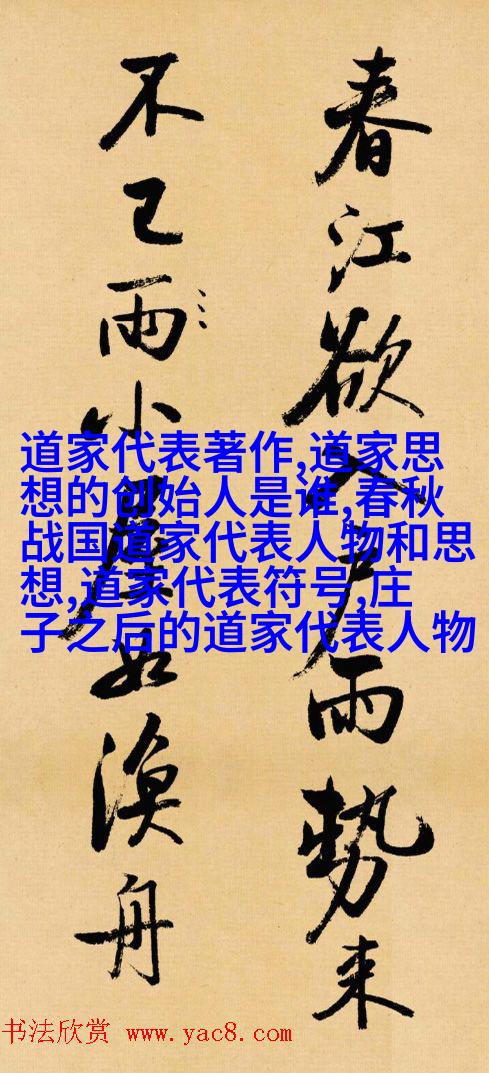 春江欲入户雨勢来
不已雨小屋如漁舟
道家代表著作,道家思
想的创始人是谁,春秋
战国道家代表人物和思
想,道家代表符号,庄
子之后的道家代表人物
书法欣赏 www.yac8.com